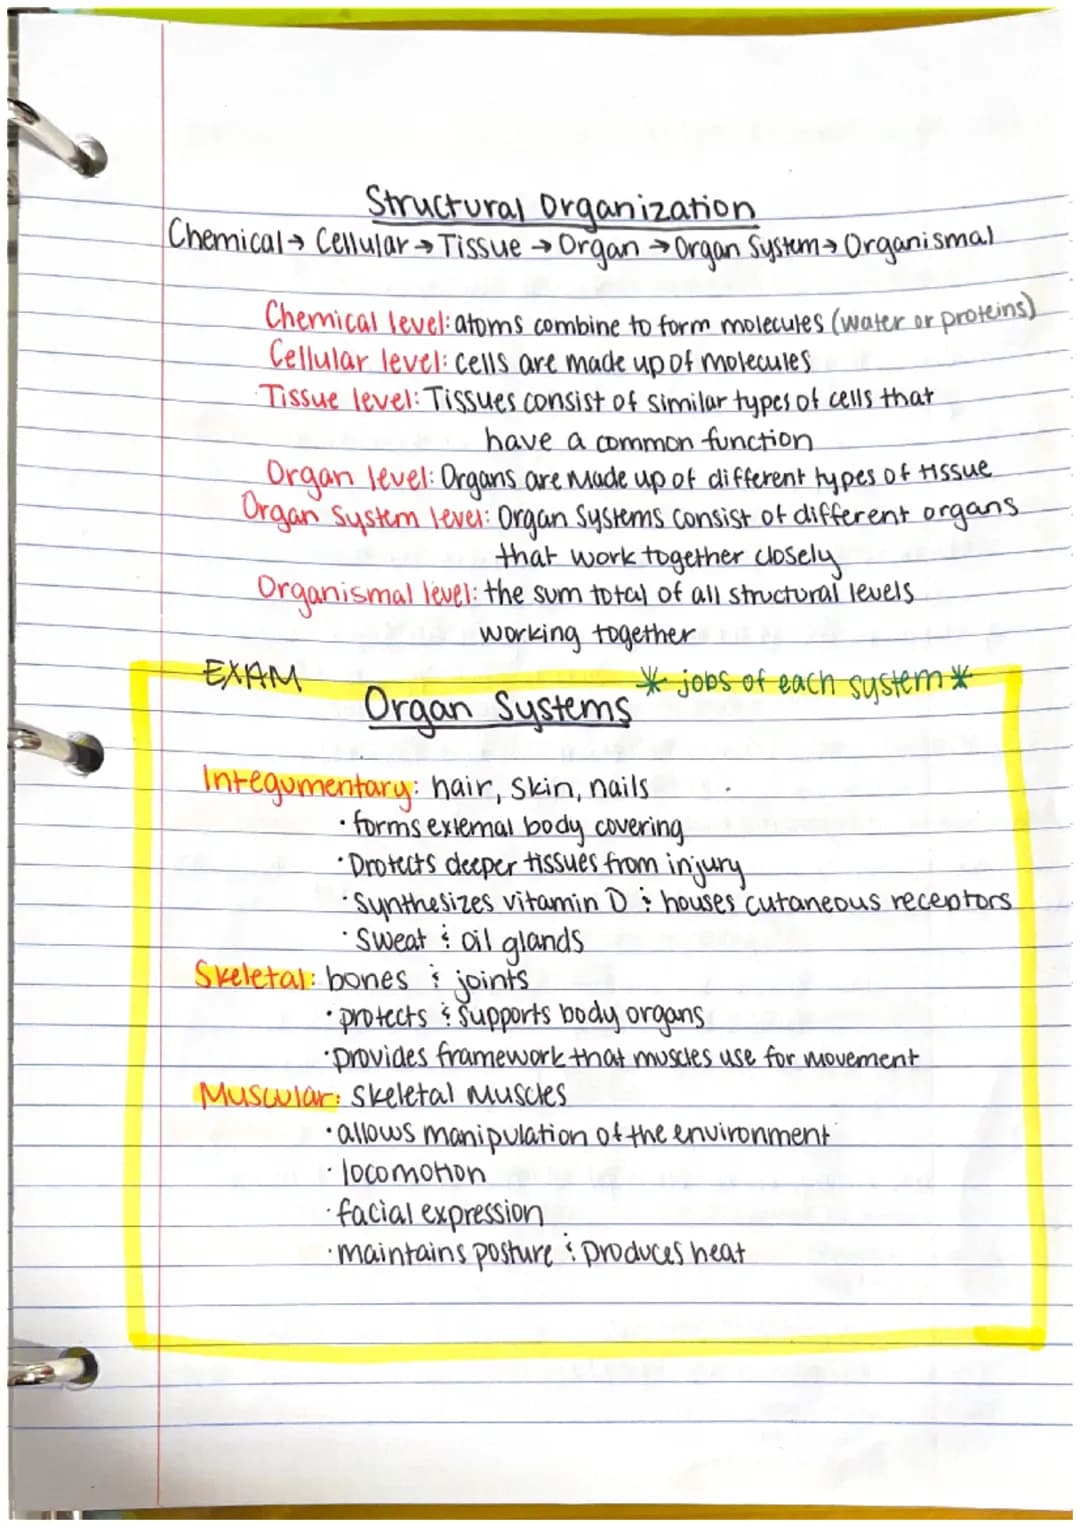 Structural Organization
Chemical → Cellular → Tissue → Organ → Organ System → Organismal
Chemical level: atoms combine to form molecules (water or proteins)
Cellular level: cells are made up of molecules
Tissue level: Tissues consist of similar types of cells that
have a common function
Organ level: Organs are made up of different types of tissue
Organ System level: Organ Systems consist of different organs
that work together closely
Organismal level: the sum total of all structural levels
working together
EXAM
* jobs of each system *
Organ Systems
Integumentary: hair, skin, nails
· forms external body covering
· Protects deeper tissues from injury
· Synthesizes vitamin D & houses cutaneous receptors
· Sweat & oil glands
Skeletal: bones & joints
· protects & supports body organs
· provides framework that muscles use for movement
Muscular: Skeletal Muscles
· allows manipulation of the environment
· locomotion
· facial expression
· maintains posture & produces heat